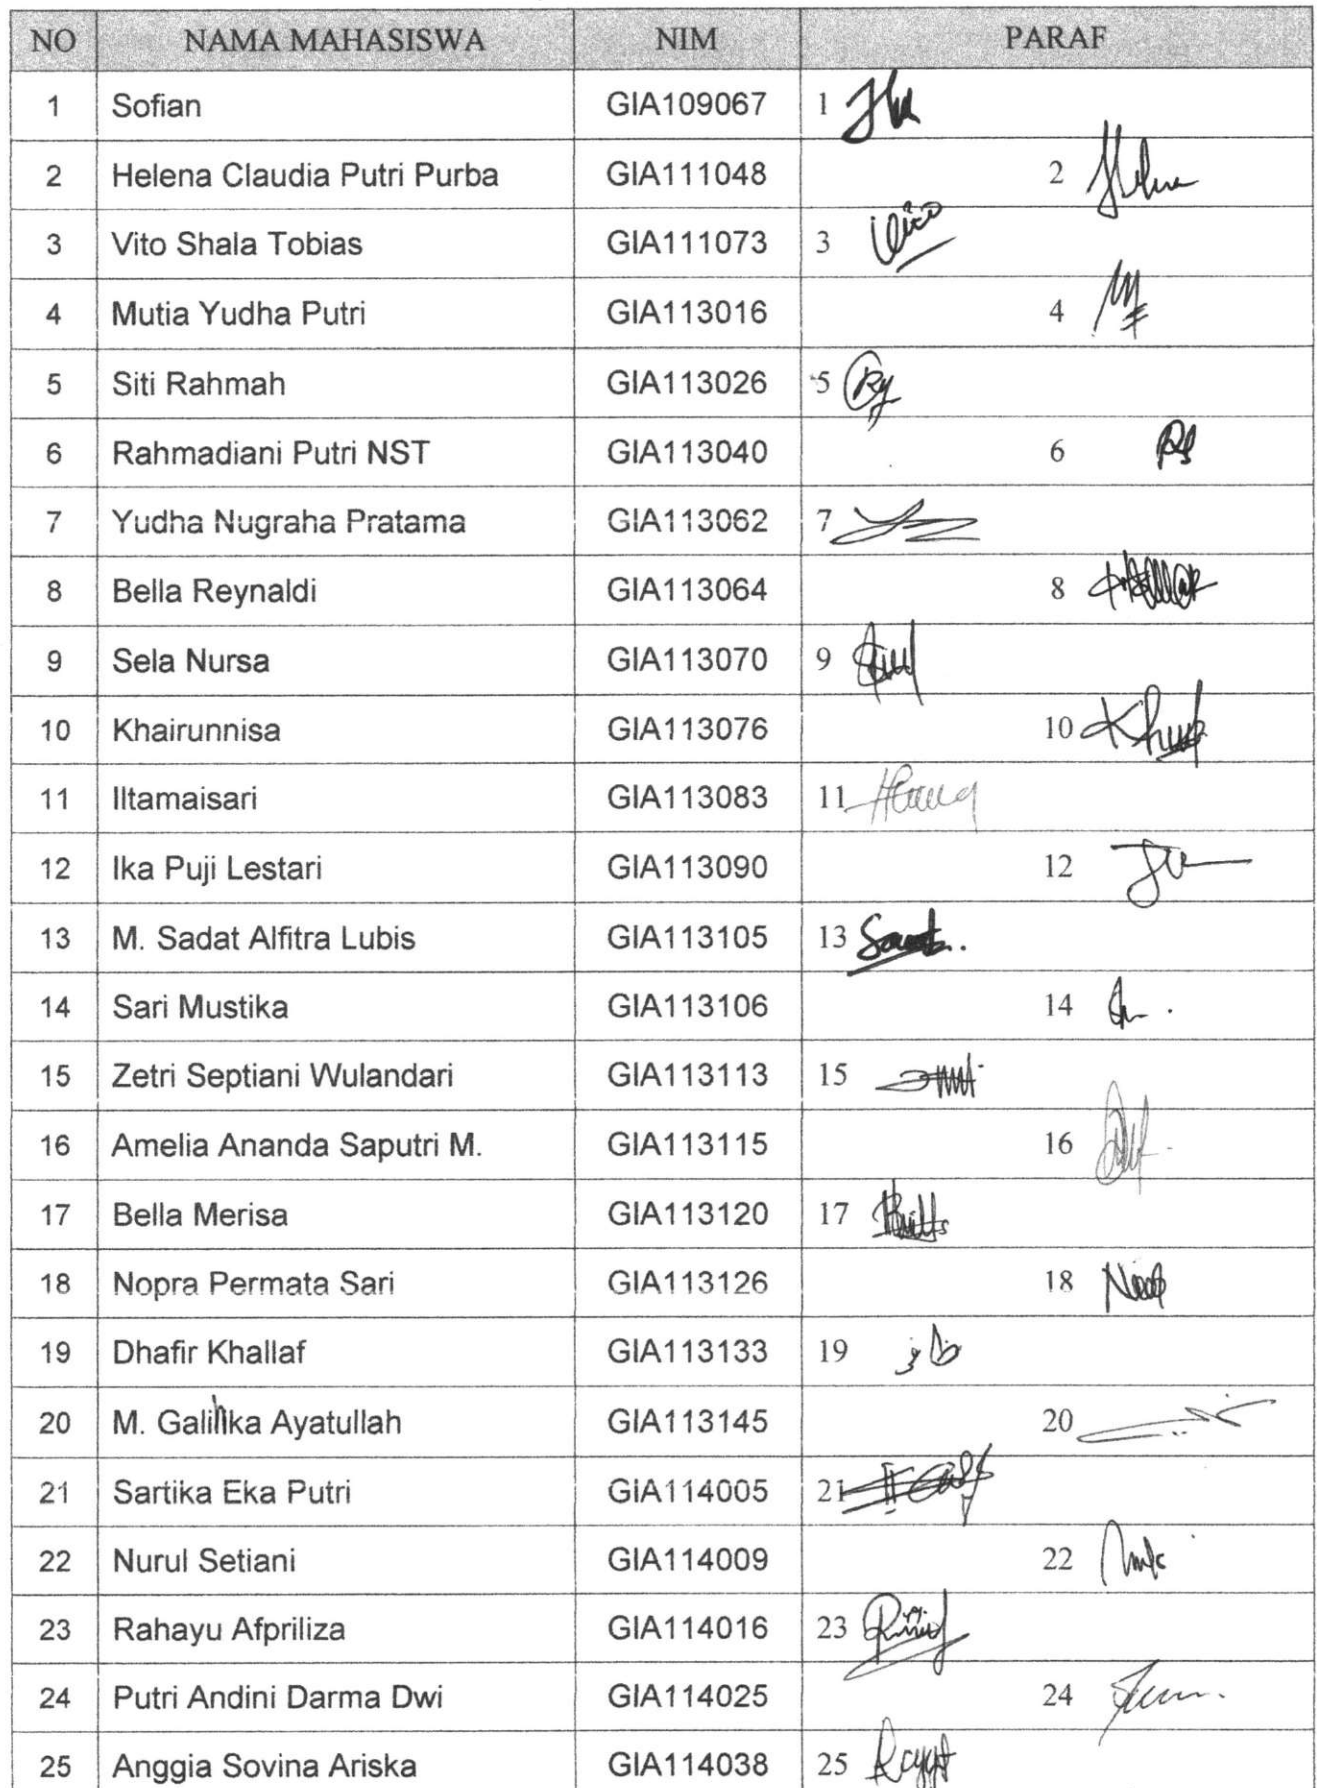 NO NAMA MAHASISWA NIM PARAF
1 Sofian GIA109067 1
2 Helena Claudia Putri Purba GIA111048 2
3 Vito Shala Tobias GIA111073 3
4 Mutia Yudha Putri GIA113016 4
5 Siti Rahmah GIA113026 5
6 Rahmadiani Putri NST GIA113040 6
7 Yudha Nugraha Pratama GIA113062 7
8 Bella Reynaldi GIA113064 8
9 Sela Nursa GIA113070 9
10 Khairunnisa GIA113076 10
11 Iltamaisari GIA113083 11
12 Ika Puji Lestari GIA113090 12
13 M. Sadat Alfitra Lubis GIA113105 13
14 Sari Mustika GIA113106 14
15 Zetri Septiani Wulandari GIA113113 15
16 Amelia Ananda Saputri M. GIA113115 16
17 Bella Merisa GIA113120 17
18 Nopra Permata Sari GIA113126 18
19 Dhafir Khallaf GIA113133 19
20 M. Galihka Ayatullah GIA113145 20
21 Sartika Eka Putri GIA114005 21
22 Nurul Setiani GIA114009 22
23 Rahayu Afpriliza GIA114016 23
24 Putri Andini Darma Dwi GIA114025 24
25 Anggia Sovina Ariska GIA114038 25